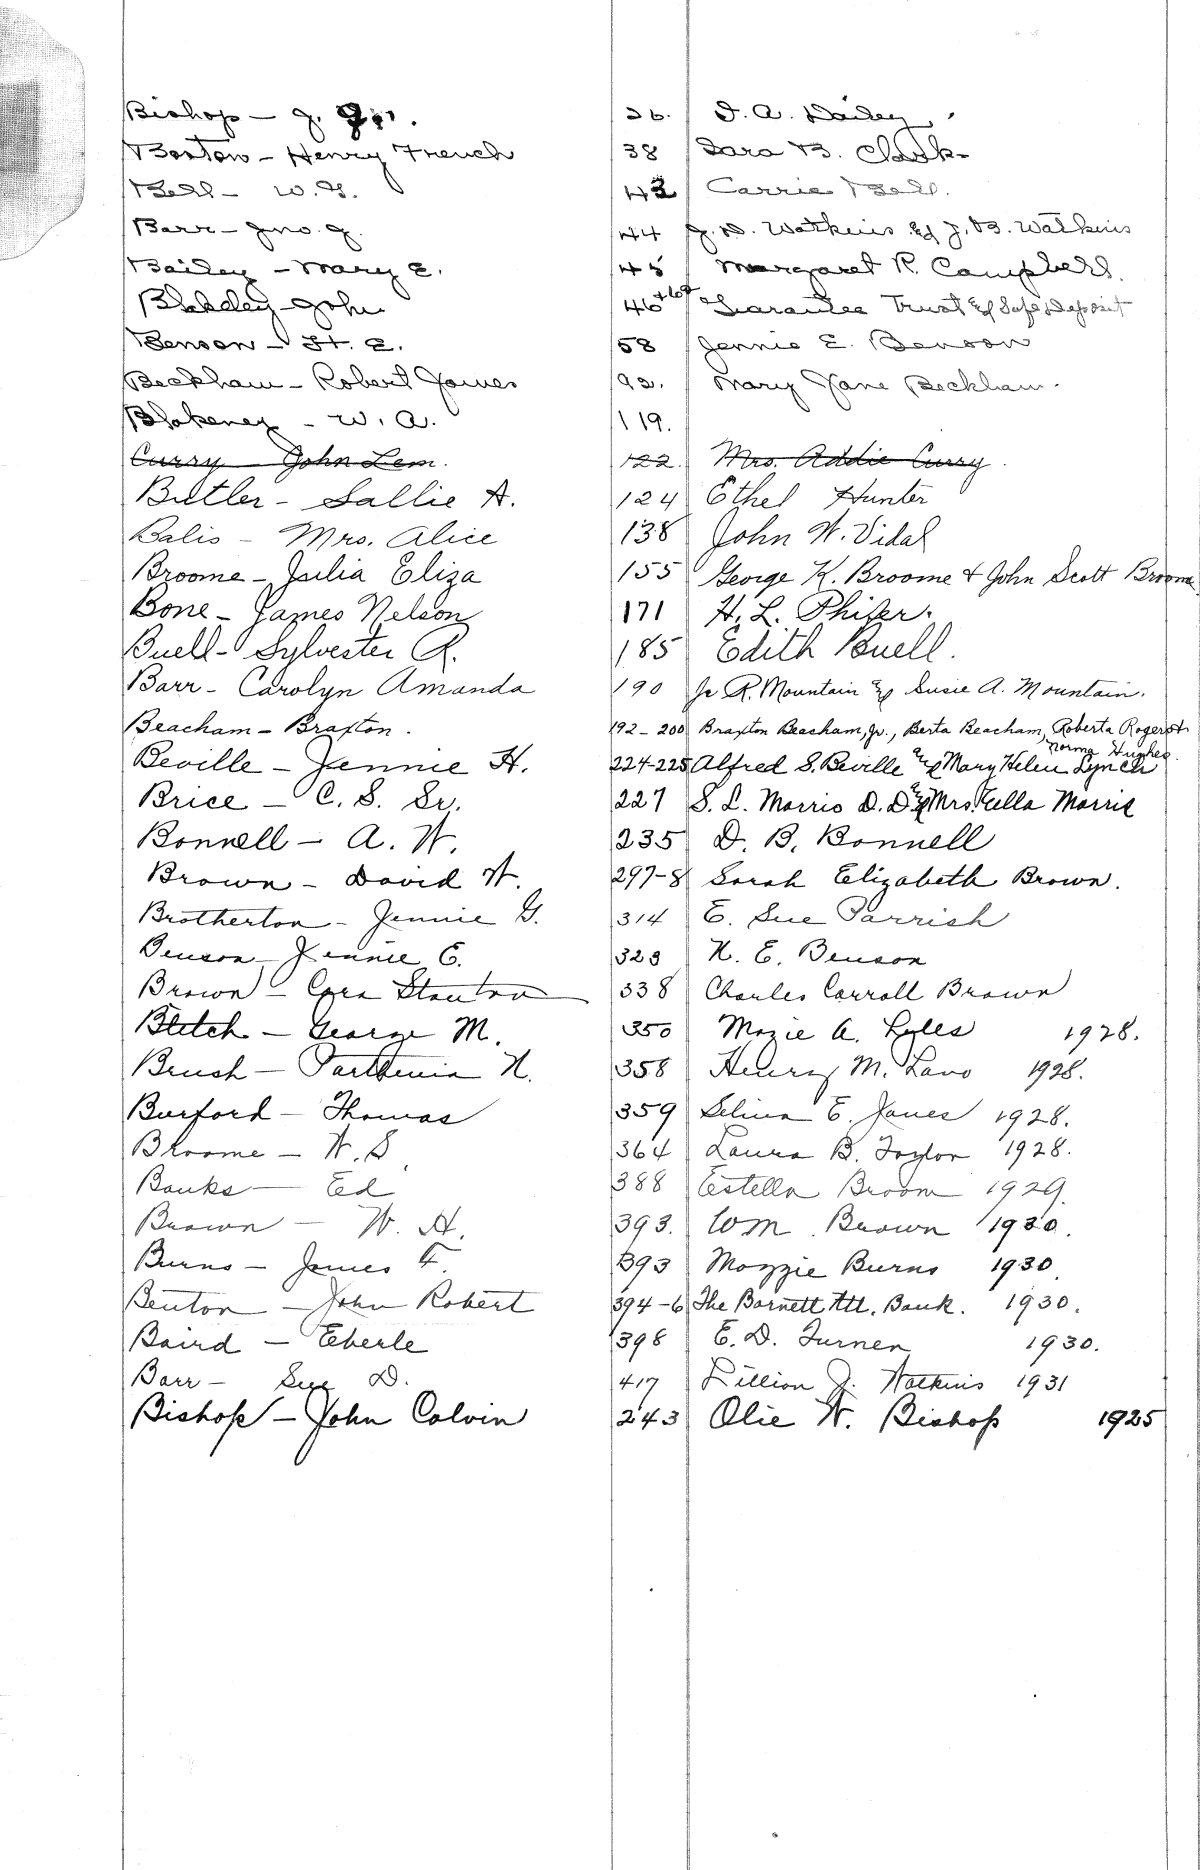 Bishop - J. 26. D. A. Dailey
Boston - Henry French 38 Sara B. Clark
Bell - W. G. 43 Carrie Bell.
Barr - Jno. J. 44 J. D. Watkins & J. B. Watkins
Bailey - Mary E. 45 Margaret R. Campbell.
Blakeley - John 46 Guarantee Trust & Safe Deposit
Benson - H. E. 58 Jennie E. Benson
Beckham - Robert James 92. Mary Jane Beckham.
Blakeney - W. A. 119.
Curry John Lem. 122. Mrs. Addie Curry.
Butler - Sallie A. 124 Ethel Hunter
Balis - Mrs. Alice 138 John W. Vidal
Broome - Julia Eliza 155 George K. Broome & John Scott Broome
Bone - James Nelson 171 H. L. Phifer.
Buell - Sylvester R. 185 Edith Buell.
Barr - Carolyn Amanda 190 R. Mountain & Susie A. Mountain.
Beacham - Braxton. 192-200 Braxton Beacham, Jr., Berta Beacham, Roberta Rogers &
Norma Hughes.
Beville - Jennie H. 224-225 Alfred S. Beville & Mary Helen Lynch
Brice - C. S. Sr. 227 S. L. Morris D. D. & Mrs. Ella Morris
Bonnell - A. W. 235 D. B. Bonnell
Brown - David W. 297-8 Sarah Elizabeth Brown.
Brotherton - Jennie G. 314 E. Sue Parrish
Benson - Jennie E. 323 H. E. Benson
Brown - Cora Stanton 338 Charles Carroll Brown
Blitch - George M. 350 Mozie A. Lyles 1928.
Brush - Parthenia N. 358 Henry M. 1928.
Burford - Thomas 359 Selina E. Jones 1928.
Broome - W. S. 364 Laura B. Taylor 1928.
Banks - Ed 388 Estella Broom 1929.
Brown - W. H. 393. Wm. Brown 1930.
Burns - James F. 393 Mozzie Burns 1930.
Benton - John Robert 394-6 The Barnett Ntl. Bank. 1930.
Baird - Eberle 398 E. D. Turner 1930.
Barr - Sue D. 417 Lillian J. Watkins 1931
Bishop - John Calvin 243 Olie W. Bishop 1925